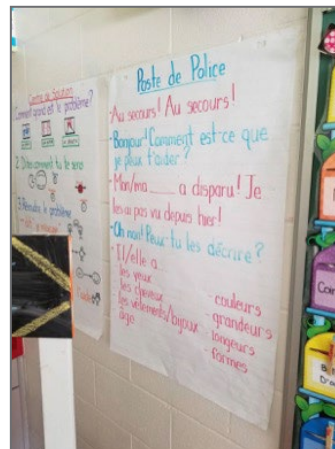 Centre de Solution
1. Comment grand est le problème?
2. Dites comment tu te sens
3. Résoudre le problème
Poste de Police
Au secours! Au secours!
- Bonjour! Comment est-ce que
je peux t'aider?
- Mon/ma ____ a disparu! Je
les ai pas vu depuis hier!
- Oh non! Peux-tu les décrire?
- Il/elle a...
les yeux
les cheveux
les vêtements/bijoux
âge
- couleurs
- grandeurs
- longeurs
- formes